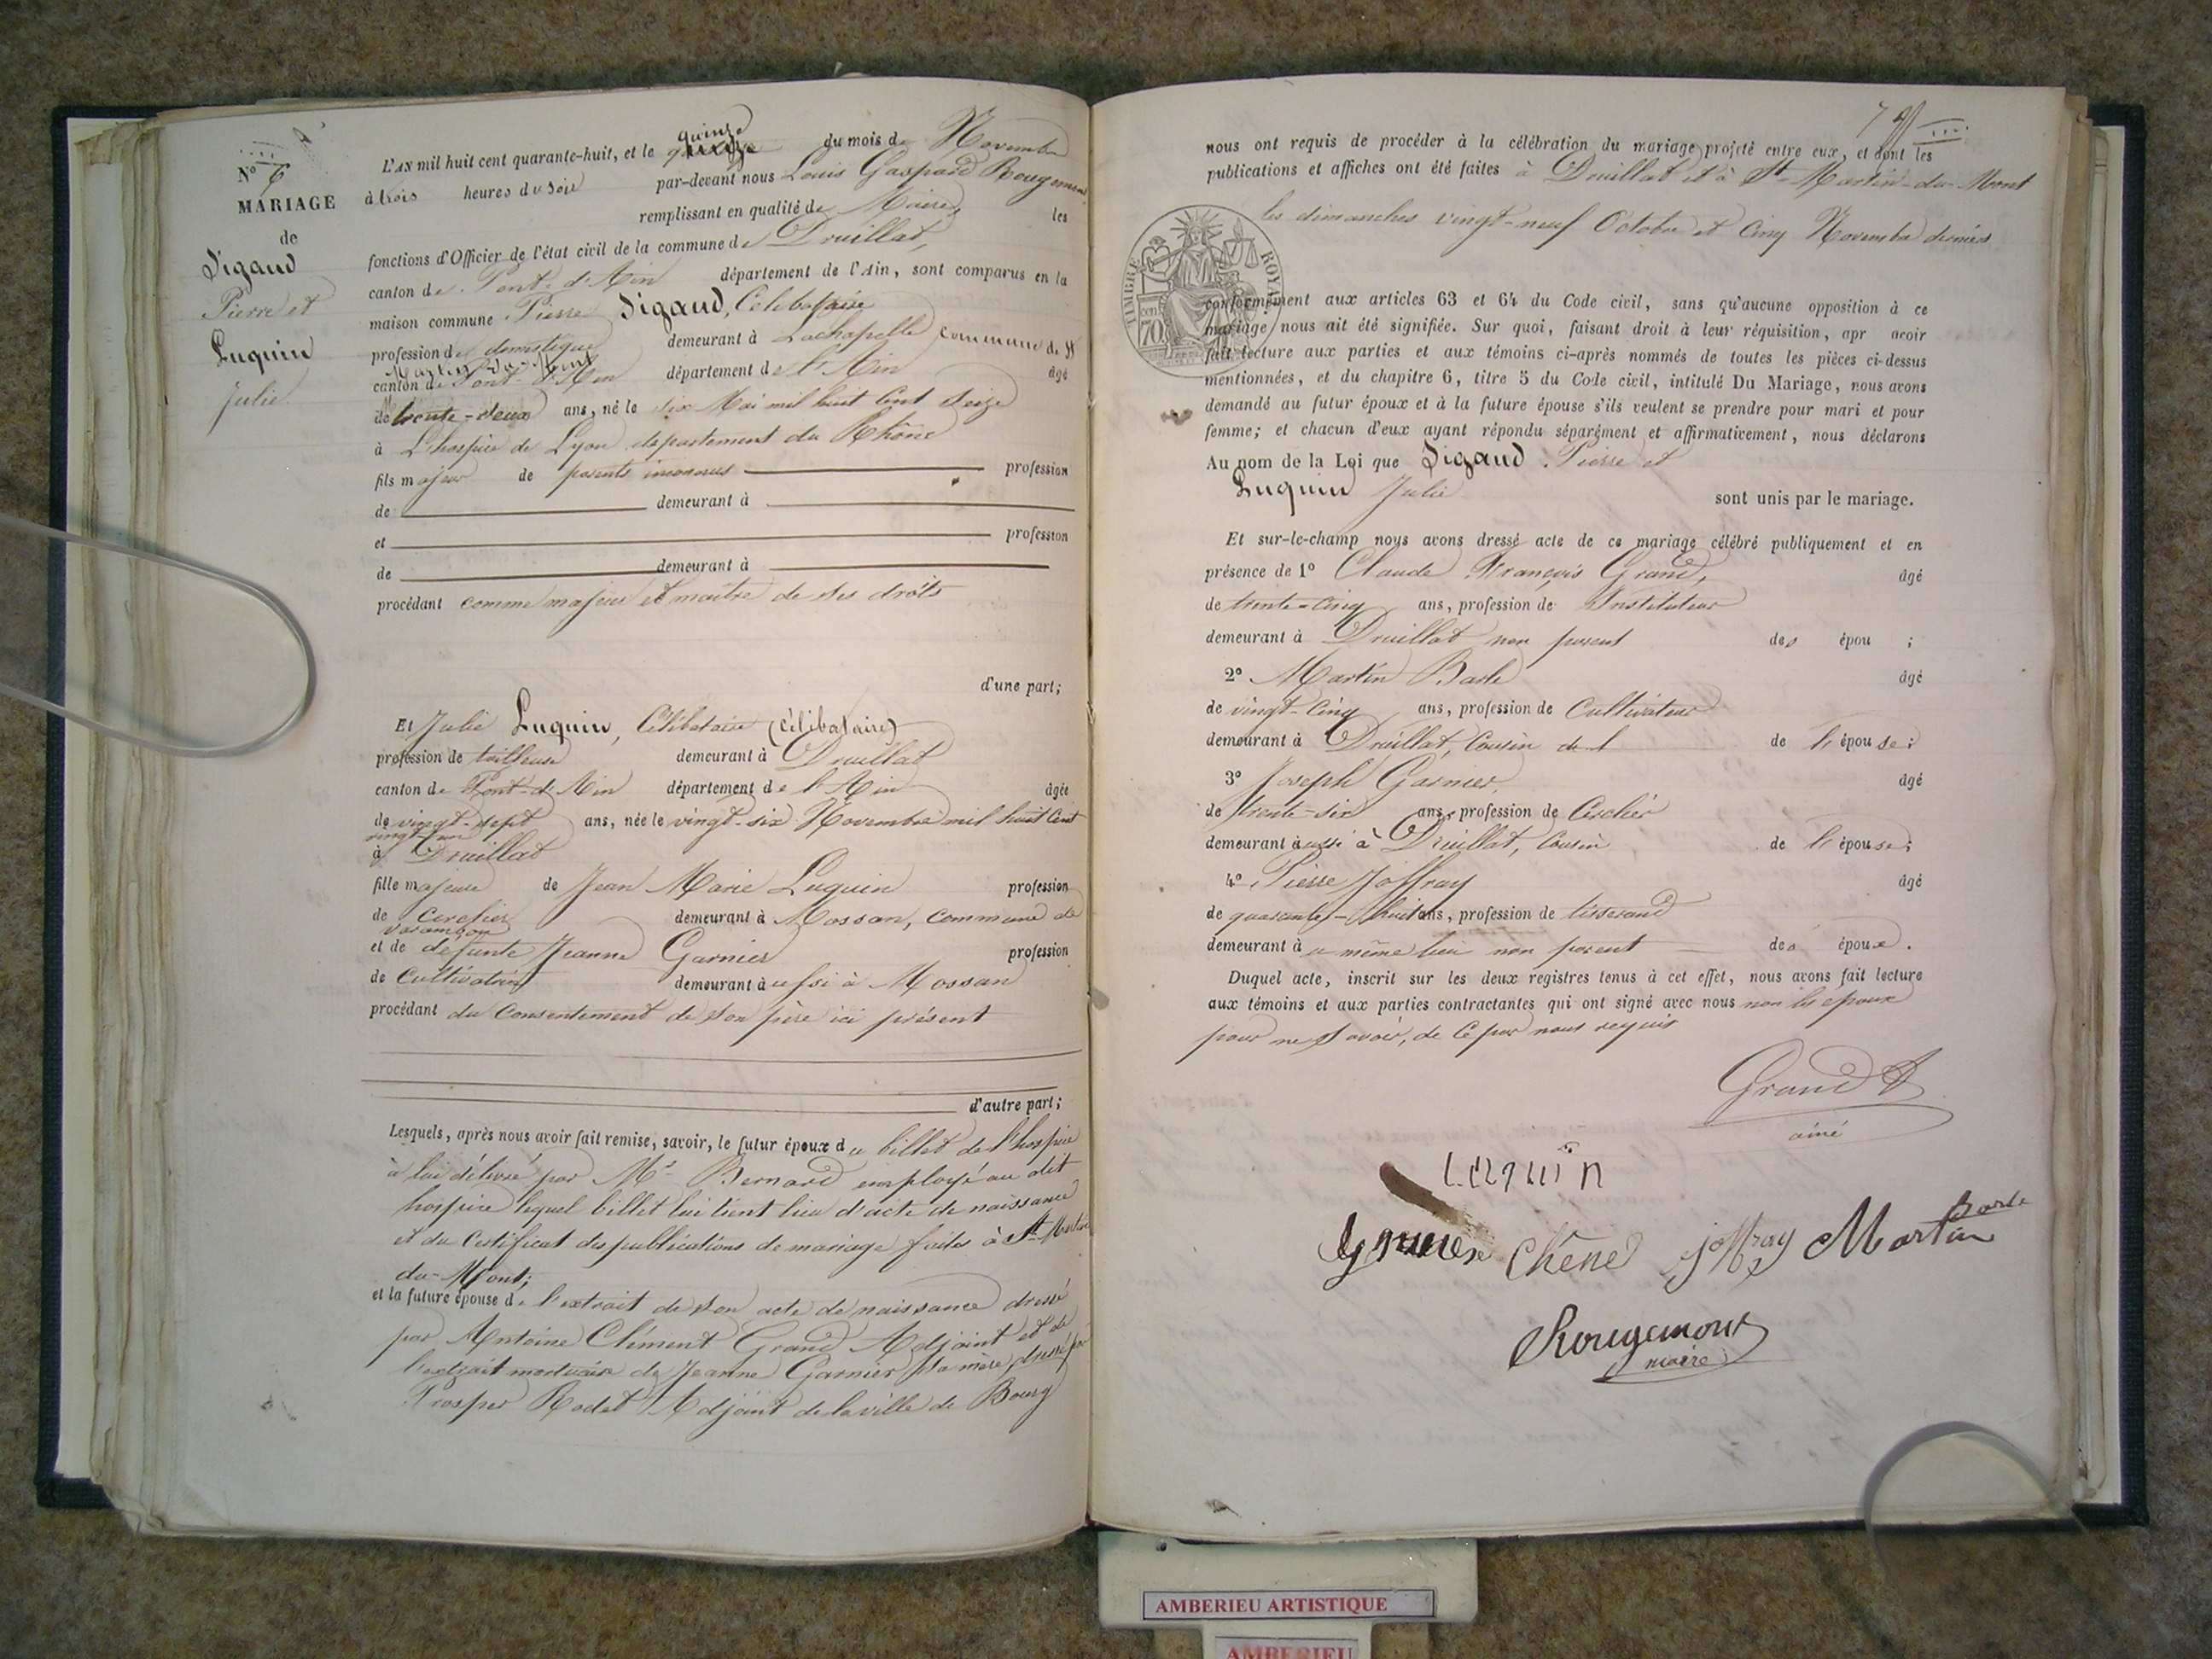 N° 6
MARIAGE
de
Sigaud
Pierre et
Luquin
Julie
L'AN mil huit cent quarante-huit, et le quinze du mois de Novembre
à trois heures du soir par-devant nous Louis Gaspard Rougemont
remplissant en qualité de Maire, les
fonctions d'Officier de l'état civil de la commune de Druillat,
canton de Pont-d'Ain département de l'Ain, sont comparus en la
maison commune Pierre Sigaud, Célibataire
profession de domestique demeurant à Lachapelle commune de St
Martin-du-Mont
canton de Pont-d'Ain département de l'Ain âgé
de trente-deux ans, né le six Mai mil huit cent seize
à L'hospice de Lyon département du Rhône
fils majeur de parents inconnus profession
de demeurant à
et profession
de demeurant à
procédant comme majeur et maître de ses droits
d'une part;
Et Julie Luquin, Célibataire (célibataire)
profession de tailleuse demeurant à Druillat
canton de Pont-d'Ain département de l'Ain âgée
de vingt-sept ans, née le vingt-six Novembre mil huit cent
vingt-un
à Druillat
fille majeure de Jean Marie Luquin profession
de cerclier demeurant à Mossan, commune de
Varambon
et de défunte Jeanne Garnier profession
de Cultivatrice demeurant aussi à Mossan
procédant du Consentement de son père ici présent
d'autre part;
Lesquels, après nous avoir fait remise, savoir, le futur époux du billet de l'hospice
à lui délivré par Mr Bernard employé au dit
hospice lequel billet lui tient lieu d'acte de naissance
et du Certificat des publications de mariage faites à St Martin
du-Mont;
et la future épouse de l'extrait de son acte de naissance dressé
par Antoine Clément Grand Adjoint et de
l'extrait mortuaire de Jeanne Garnier sa mère dressé par
Prosper Rodet Adjoint de la ville de Bourg
nous ont requis de procéder à la célébration du mariage projeté entre eux, et dont les
publications et affiches ont été faites à Druillat et à St Martin-du-Mont
les dimanches vingt-neuf Octobre et Cinq Novembre derniers
TIMBRE ROYAL
70
conformément aux articles 63 et 64 du Code civil, sans qu'aucune opposition à ce
mariage nous ait été signifiée. Sur quoi, faisant droit à leur réquisition, apr avoir
fait lecture aux parties et aux témoins ci-après nommés de toutes les pièces ci-dessus
mentionnées, et du chapitre 6, titre 5 du Code civil, intitulé Du Mariage, nous avons
demandé au futur époux et à la future épouse s'ils veulent se prendre pour mari et pour
femme; et chacun d'eux ayant répondu séparément et affirmativement, nous déclarons
Au nom de la Loi que Sigaud Pierre et
Luquin Julie sont unis par le mariage.
Et sur-le-champ nous avons dressé acte de ce mariage célébré publiquement et en
présence de 1° Claude François Grand, âgé
de trente-cinq ans, profession de Instituteur
demeurant à Druillat non parent des épou ;
2° Martin Barle âgé
de vingt-cinq ans, profession de Cultivateur
demeurant à Druillat, Cousin de l de l'épouse;
3° Joseph Garnier, âgé
de trente-six ans, profession de Cerclier
demeurant aussi à Druillat, Cousin de l'épouse;
4° Pierre Joffray âgé
de quarante-huit ans, profession de tisserand
demeurant au même lieu non parent des époux.
Duquel acte, inscrit sur les deux registres tenus à cet effet, nous avons fait lecture
aux témoins et aux parties contractantes qui ont signé avec nous non les époux
pour ne savoir, de ce par nous requis
Grand
ainé
Luquin
Chêne Joffray Martin Barle
Rougemont
maire
AMBERIEU ARTISTIQUE
AMBERIEU